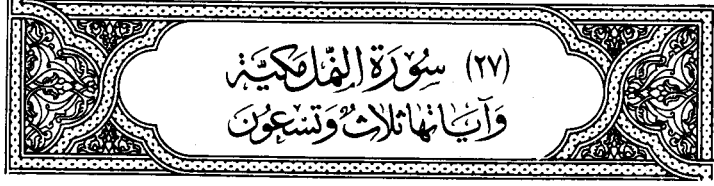 (٢٧) سُورَة النَّمْل مَكيَّة
وَآيَاتهَا ثلَاثٌ وَتسْعُونَ